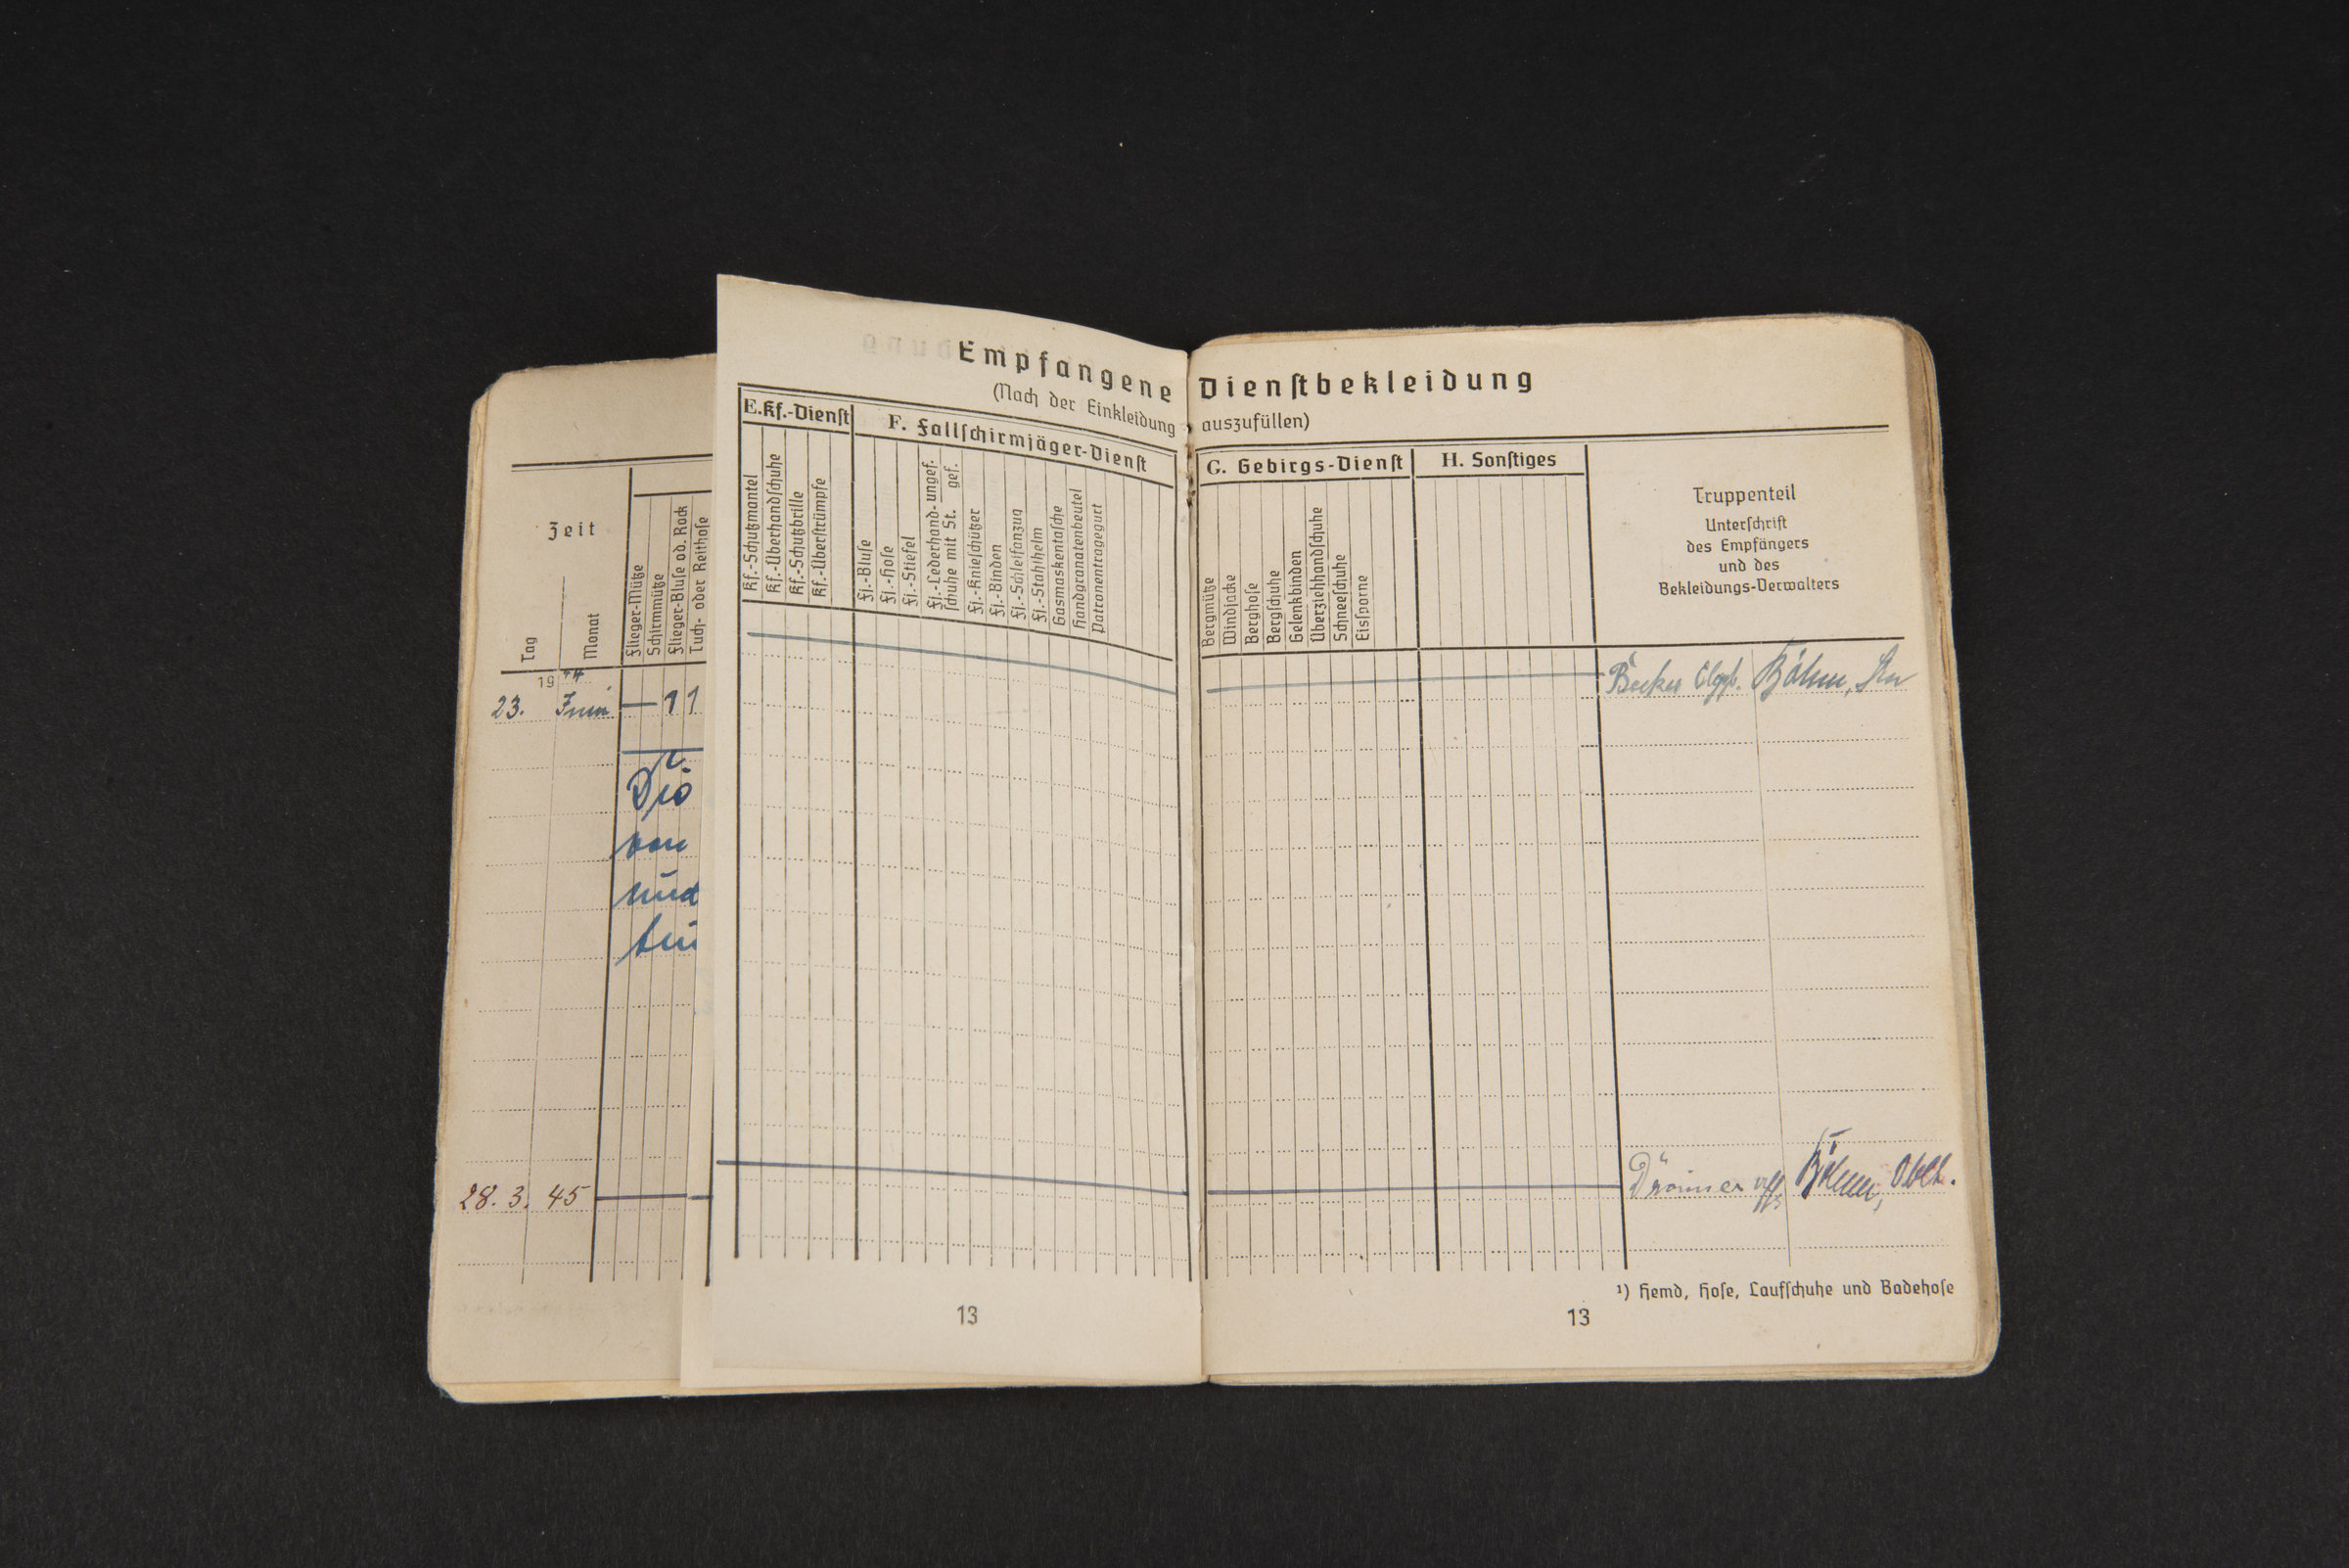 Zeit
Tag
Monat
Flieger-Mütze
Schirmmütze
Flieger-Bluse od. Rock
Tuch- oder Reithose
1944
23. Juni — 1 1
Drö
von
und
28. 3. 45
Empfangene Dienstbekleidung
(Nach der Einkleidung auszufüllen)
E. Kf.-Dienst
Kf.-Schutzmantel
Kf.-Überhandschuhe
Kf.-Schutzbrille
Kf.-Überstrümpfe
F. Fallschirmjäger-Dienst
Fj.-Bluse
Fj.-Hose
Fj.-Stiefel
Fj.-Lederhand- ungef.
schuhe mit St. gef.
Fj.-Knieschützer
Fj.-Binden
Fj.-Schleifanzug
Fj.-Stahlhelm
Gasmaskentasche
Handgranatenbeutel
Patronentragegurt
13
G. Gebirgs-Dienst
Bergmütze
Windjacke
Berghose
Bergschuhe
Gelenkbinden
Überziehhandschuhe
Schneeschuhe
Eissporne
H. Sonstiges
Truppenteil
Unterschrift
des Empfängers
und des
Bekleidungs-Verwalters
Becker Böhm,
Drömer Uffz Böhm, Oblt.
¹) Hemd, Hose, Laufschuhe und Badehose
13